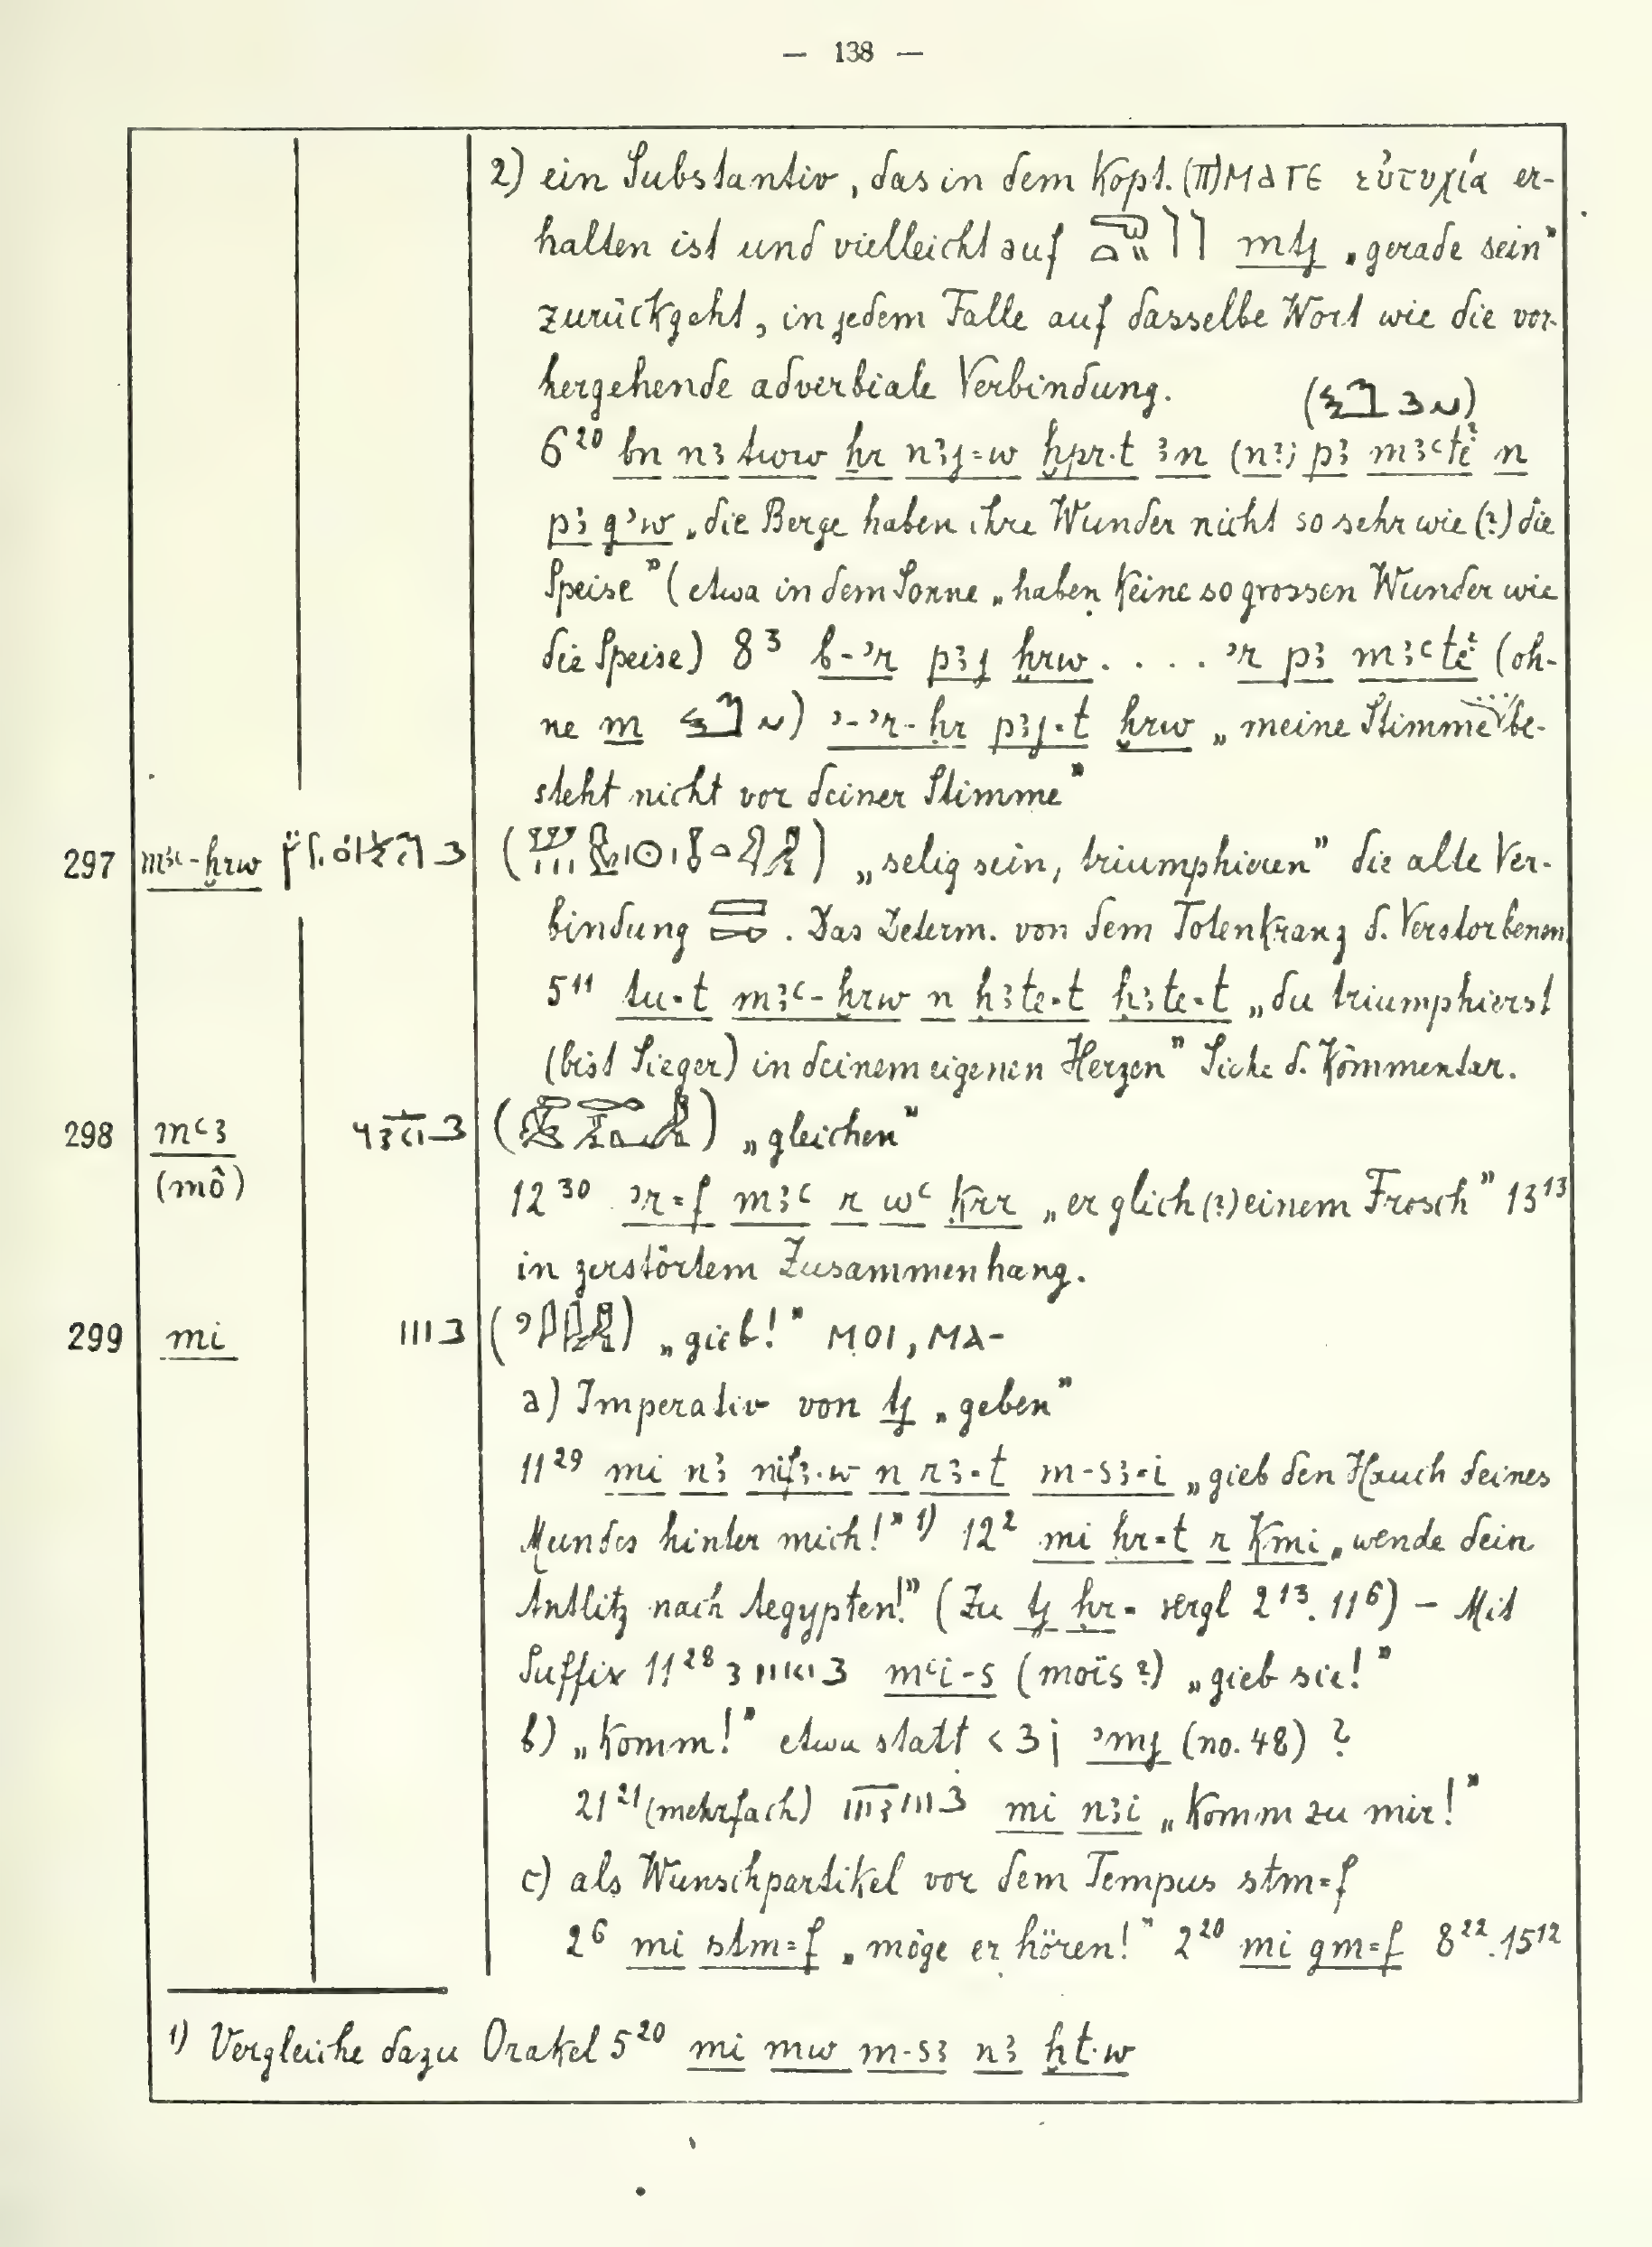 — 138 —
2) ein Substantiv, das in dem Kopt. (ⲡ)ⲙⲁⲧⲉ εὐτυχία er-
halten ist und vielleicht auf mtj „gerade sein"
zurückgeht, in jedem Falle auf dasselbe Wort wie die vor-
hergehende adverbiale Verbindung.
6²⁰ bn nꜣ tww ḥr nꜣj=w ḫpr.t ꜣn (nꜣ; pꜣ mꜣꜥtė n
pꜣ qʾw „die Berge haben ihre Wunder nicht so sehr wie (?) die
Speise" (etwa in dem Sonne „haben keine so grossen Wunder wie
die Speise) 8³ b-ʾr pꜣj ḫrw . . . . ʾr pꜣ mꜣꜥtė (oh-
ne m ) ʾ-ʾr-ḥr pꜣj.t ḫrw „meine Stimme be-
steht nicht vor deiner Stimme"
297 mꜣꜥ-ḫrw ( ) „selig sein, triumphieren" die alte Ver-
bindung . Das Determ. von dem Totenkranz d. Verstorbenen
5¹¹ tu.t mꜣꜥ-ḫrw n ḥꜣte.t ḥꜣte.t „du triumphierst
(bist Sieger) in deinem eigenen Herzen" Siehe d. Kommentar.
298 mꜥꜣ ( ) „gleichen"
(mô) 12³⁰ ʾr=f mꜣꜥ r wꜥ krr „er glich (?) einem Frosch" 13¹³
in zerstörtem Zusammenhang.
299 mi ( ) „gieb!" ⲙⲟⲓ, ⲙⲁ-
a) Imperativ von tj „geben"
11²⁹ mi nꜣ nifꜣ.w n rꜣ.t m-sꜣ.i „gieb den Hauch deines
Mundes hinter mich!" ¹⁾ 12² mi ḥr=t r Kmi „wende dein
Antlitz nach Aegypten!" (Zu tj ḥr= vergl 2¹³. 11⁶) – Mit
Suffix 11²⁸ mꜥi-s (moïs?) „gieb sie!"
b) „Komm!" etwa statt ʾmj (no. 48) ?
21²¹ (mehrfach) mi nꜣi „Komm zu mir!"
c) als Wunschpartikel vor dem Tempus stm=f
2⁶ mi stm=f „möge er hören!" 2²⁰ mi gm=f 8²².15¹²
¹⁾ Vergleiche dazu Orakel 5²⁰ mi mw m-sꜣ nꜣ ḫt.w